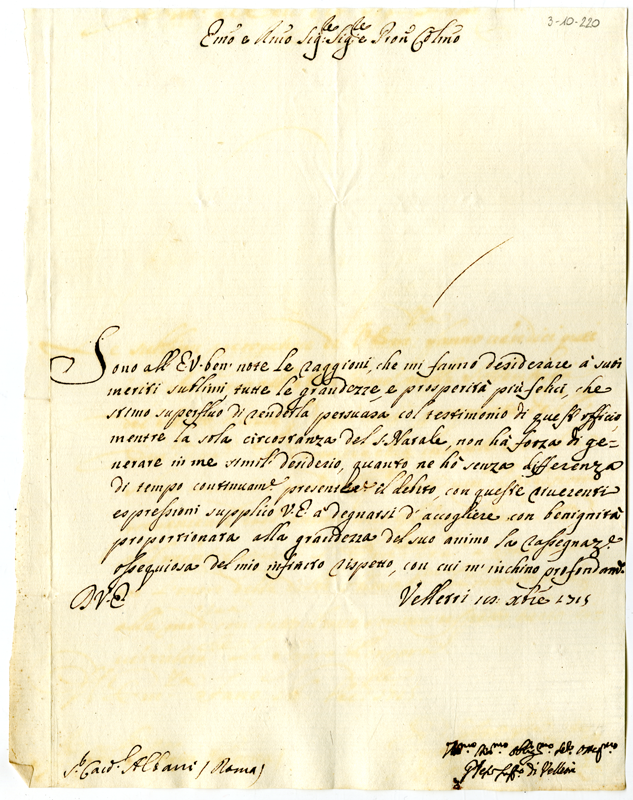 3-10-220
Emo e Rmo Sigre Sigre e Pron Colmo
Sono all'E.V. ben note le raggioni, che mi fanno desiderare à suoi
meriti sublimi tutte le grandezze, e prosperità più felici, che
stimo superfluo di renderla persuasa col testimonio di quest'offitio,
mentre la sola circostanza del S. Natale, non hà forza di ge-
nerare in me simil desiderio, quanto ne hò senza differenza
di tempo continuamte presente il debito, con queste riverenti
espressioni supplico V.E. à degnarsi di accogliere con benignità
proportionata alla grandezza del suo animo la rassegnaze
ossequiosa del mio infinito rispetto, con cui m'inchino profondamte
D.V.E.
Velletri xbre 1715
Sr Cardl Albani (Roma)
Hmo mo obligmo
di Velletri